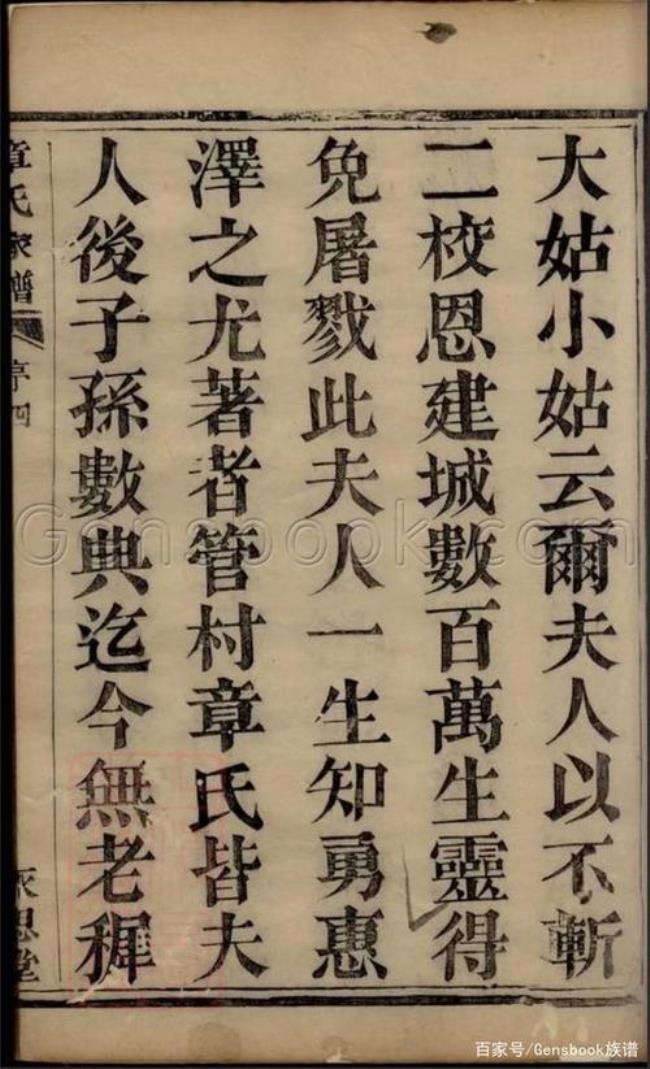 大姑小姑云爾夫人以不斬
二校恩建城數百萬生靈得
免屠戮此夫人一生知勇惠
澤之尤著者管村章氏皆夫
人後子孫數典迄今無老穉
章氏家譜 序四
永思堂
Gensbook.com
百家号/Gensbook族谱